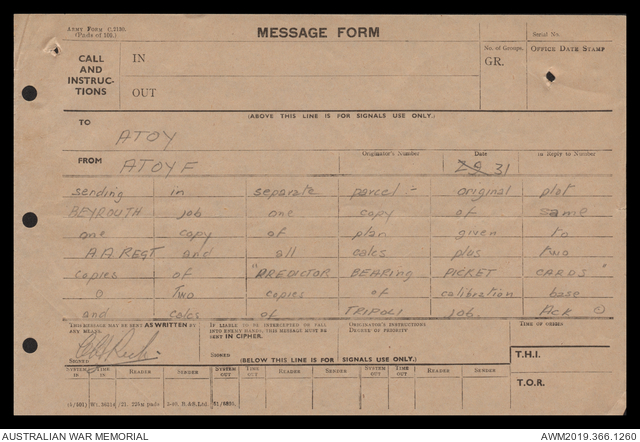 ARMY FORM C.2136.
(Pads of 100.)
MESSAGE FORM
Serial No.
CALL AND INSTRUCTIONS
IN
OUT
No. of Groups.
GR.
OFFICE DATE STAMP
(ABOVE THIS LINE IS FOR SIGNALS USE ONLY.)
TO
ATOY
FROM
ATOYF
Originator's Number
Date
29 31
In Reply to Number
sending in separate parcel - original plot
BEYROUTH job one copy of same
one copy of plan given to
A.A. REGT and all calcs plus two
copies of "PREDICTOR BEARING PICKET CARDS"
Two copies of calibration base
and calcs of TRIPOLI job. ACK
THIS MESSAGE MAY BE SENT AS WRITTEN BY ANY MEANS.
SIGNED
IF LIABLE TO BE INTERCEPTED OR FALL INTO ENEMY HANDS, THIS MESSAGE MUST BE SENT IN CIPHER.
SIGNED
ORIGINATOR'S INSTRUCTIONS
DEGREE OF PRIORITY
TIME OF ORIGIN
(BELOW THIS LINE IS FOR SIGNALS USE ONLY.)
T.H.I.
T.O.R.
SYSTEM IN TIME IN READER SENDER SYSTEM OUT TIME OUT READER SENDER SYSTEM OUT TIME OUT READER SENDER
AUSTRALIAN WAR MEMORIAL
AWM2019.366.1260